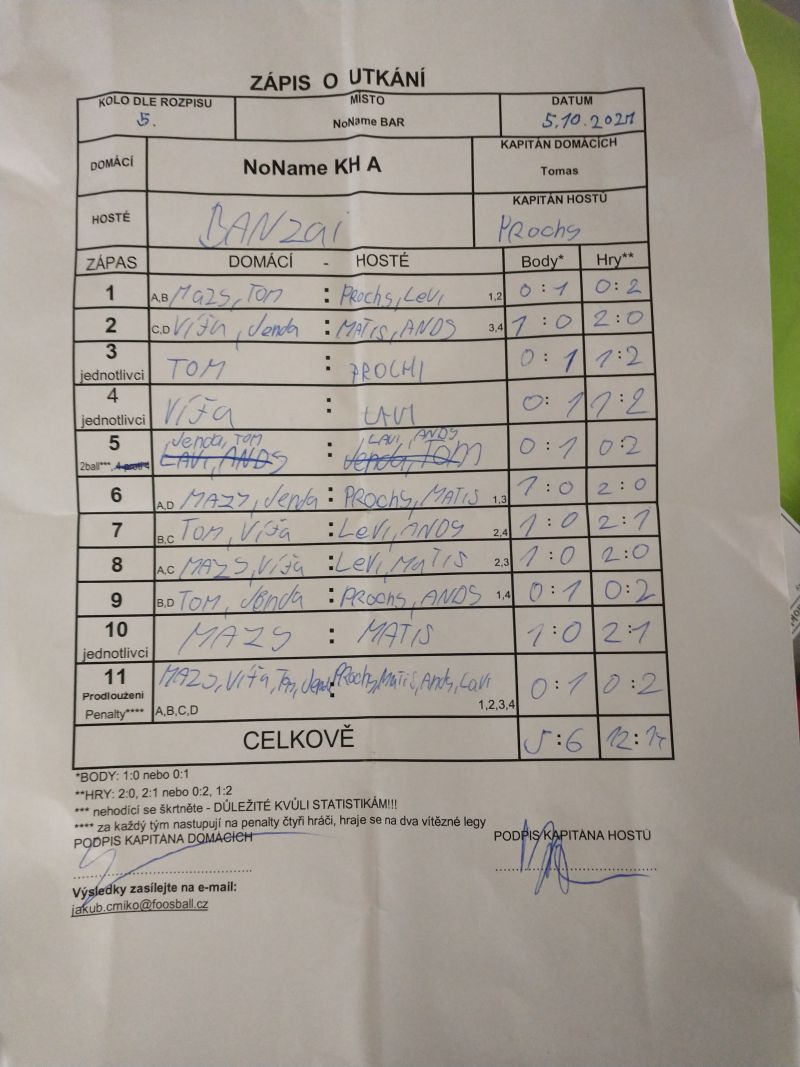 ZÁPIS O UTKÁNÍ
KOLO DLE ROZPISU MÍSTO DATUM
5. NoName BAR 5.10.2021
DOMÁCÍ NoName KH A KAPITÁN DOMÁCÍCH
Tomas
HOSTÉ BANZai KAPITÁN HOSTŮ
PRochy
ZÁPAS DOMÁCÍ - HOSTÉ Body* Hry**
1 A,B MAZY, TOM : PRochy, LeVi 1,2 0:1 0:2
2 C,D Víťa, Jenda : MATiS, ANDY 3,4 1:0 2:0
3 jednotlivci TOM : PROCHI 0:1 1:2
4 jednotlivci Víťa : LAVI 0:1 1:2
Jenda, TOM LAVI, ANDY
5 2ball***, 4 proti 4 LAVI, ANDY : Jenda, TOM 0:1 0:2
6 A,D MAZY, Jenda : PRochy, MATIS 1,3 1:0 2:0
7 B,C TOM, Víťa : LeVi, ANDY 2,4 1:0 2:1
8 A,C MAZY, Víťa : LeVi, MaTiS 2,3 1:0 2:0
9 B,D TOM, Jenda : PRochy, ANDY 1,4 0:1 0:2
10 jednotlivci MAZY : MATIS 1:0 2:1
11 MAZY, Víťa, Tom, Jenda : PRochy, Matis, Andy, Lavi 0:1 0:2
Prodloužení
Penalty**** A,B,C,D 1,2,3,4
CELKOVĚ 5:6 12:14
*BODY: 1:0 nebo 0:1
**HRY: 2:0, 2:1 nebo 0:2, 1:2
*** nehodící se škrtněte - DŮLEŽITÉ KVŮLI STATISTIKÁM!!!
**** za každý tým nastupují na penalty čtyři hráči, hraje se na dva vítězné legy
PODPIS KAPITÁNA DOMÁCÍCH PODPIS KAPITÁNA HOSTŮ
Výsledky zasílejte na e-mail:
jakub.cmiko@foosball.cz